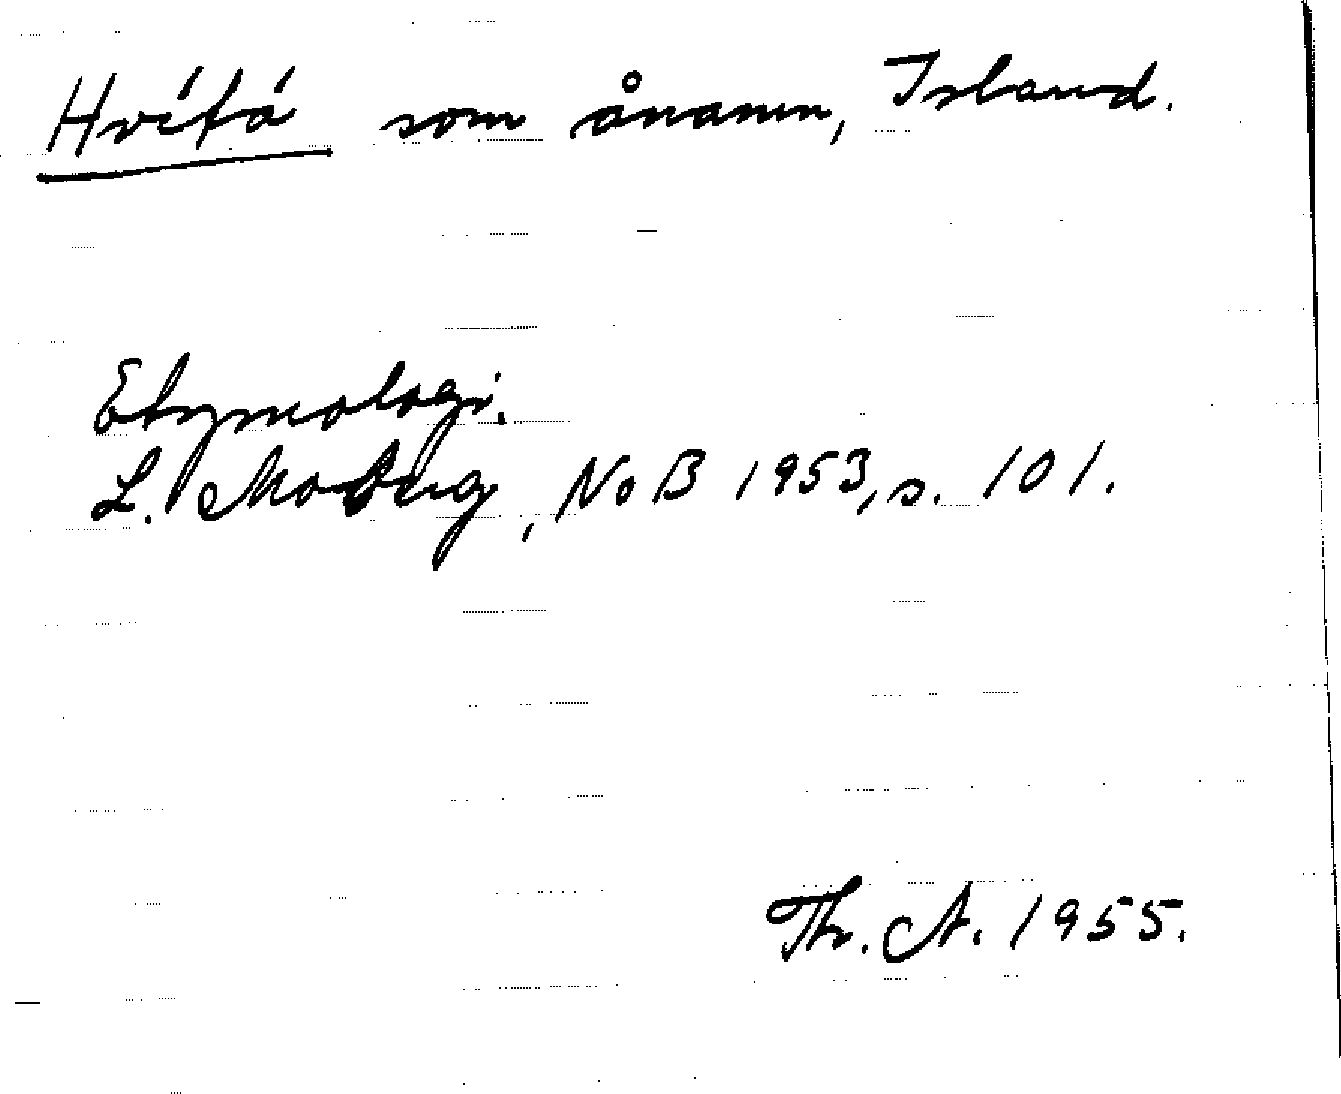 Hvítá som ånamn, Island.
Etymologi.
L. Moberg, NoB 1953, s. 101.
Th. A. 1955.